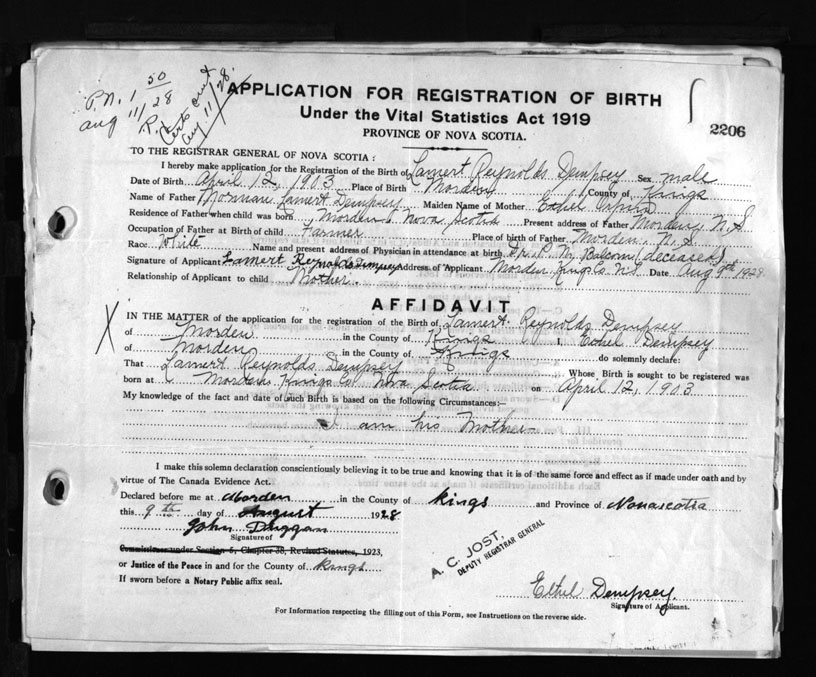 P.N. 1 50
Aug 11/28
Aug 11/28.
APPLICATION FOR REGISTRATION OF BIRTH
Under the Vital Statistics Act 1919
PROVINCE OF NOVA SCOTIA.
2206
TO THE REGISTRAR GENERAL OF NOVA SCOTIA :
I hereby make application for the Registration of the Birth of Lamert Reynolds Dempsey Sex male
Date of Birth April 12, 1903 Place of Birth Morden County of Kings
Name of Father Norman Lamert Dempsey Maiden Name of Mother Ethel
Residence of Father when child was born Morden Nova Scotia Present address of Father Morden, N.S
Occupation of Father at Birth of child Farmer Place of birth of Father Morden, N.S.
Race White Name and present address of Physician in attendance at birth Dr. P. N. Balcom (deceased)
Signature of Applicant Lamert Reynolds Dempsey Address of Applicant Morden Kings Co N.S. Date Aug 9th 1928
Relationship of Applicant to child Mother.
AFFIDAVIT
X
IN THE MATTER of the application for the registration of the Birth of Lamert Reynolds Dempsey
of Morden in the County of Kings I, Ethel Dempsey
of Morden in the County of Kings do solemnly declare:
That Lamert Reynolds Dempsey Whose Birth is sought to be registered was
born at Morden Kings Co Nova Scotia on April 12, 1903
My knowledge of the fact and date of such Birth is based on the following Circumstances:—
I am his Mother
I make this solemn declaration conscientiously believing it to be true and knowing that it is of the same force and effect as if made under oath and by
virtue of The Canada Evidence Act.
Declared before me at Morden in the County of Kings and Province of Novascotia
this 9th day of August 1928
John Duggan
Signature of
Commissioner under Section 5, Chapter 38, Revised Statutes, 1923,
or Justice of the Peace in and for the County of Kings
If sworn before a Notary Public affix seal.
A. C. JOST,
DEPUTY REGISTRAR GENERAL
Ethel Dempsey.
Signature of Applicant.
For Information respecting the filling out of this Form, see Instructions on the reverse side.